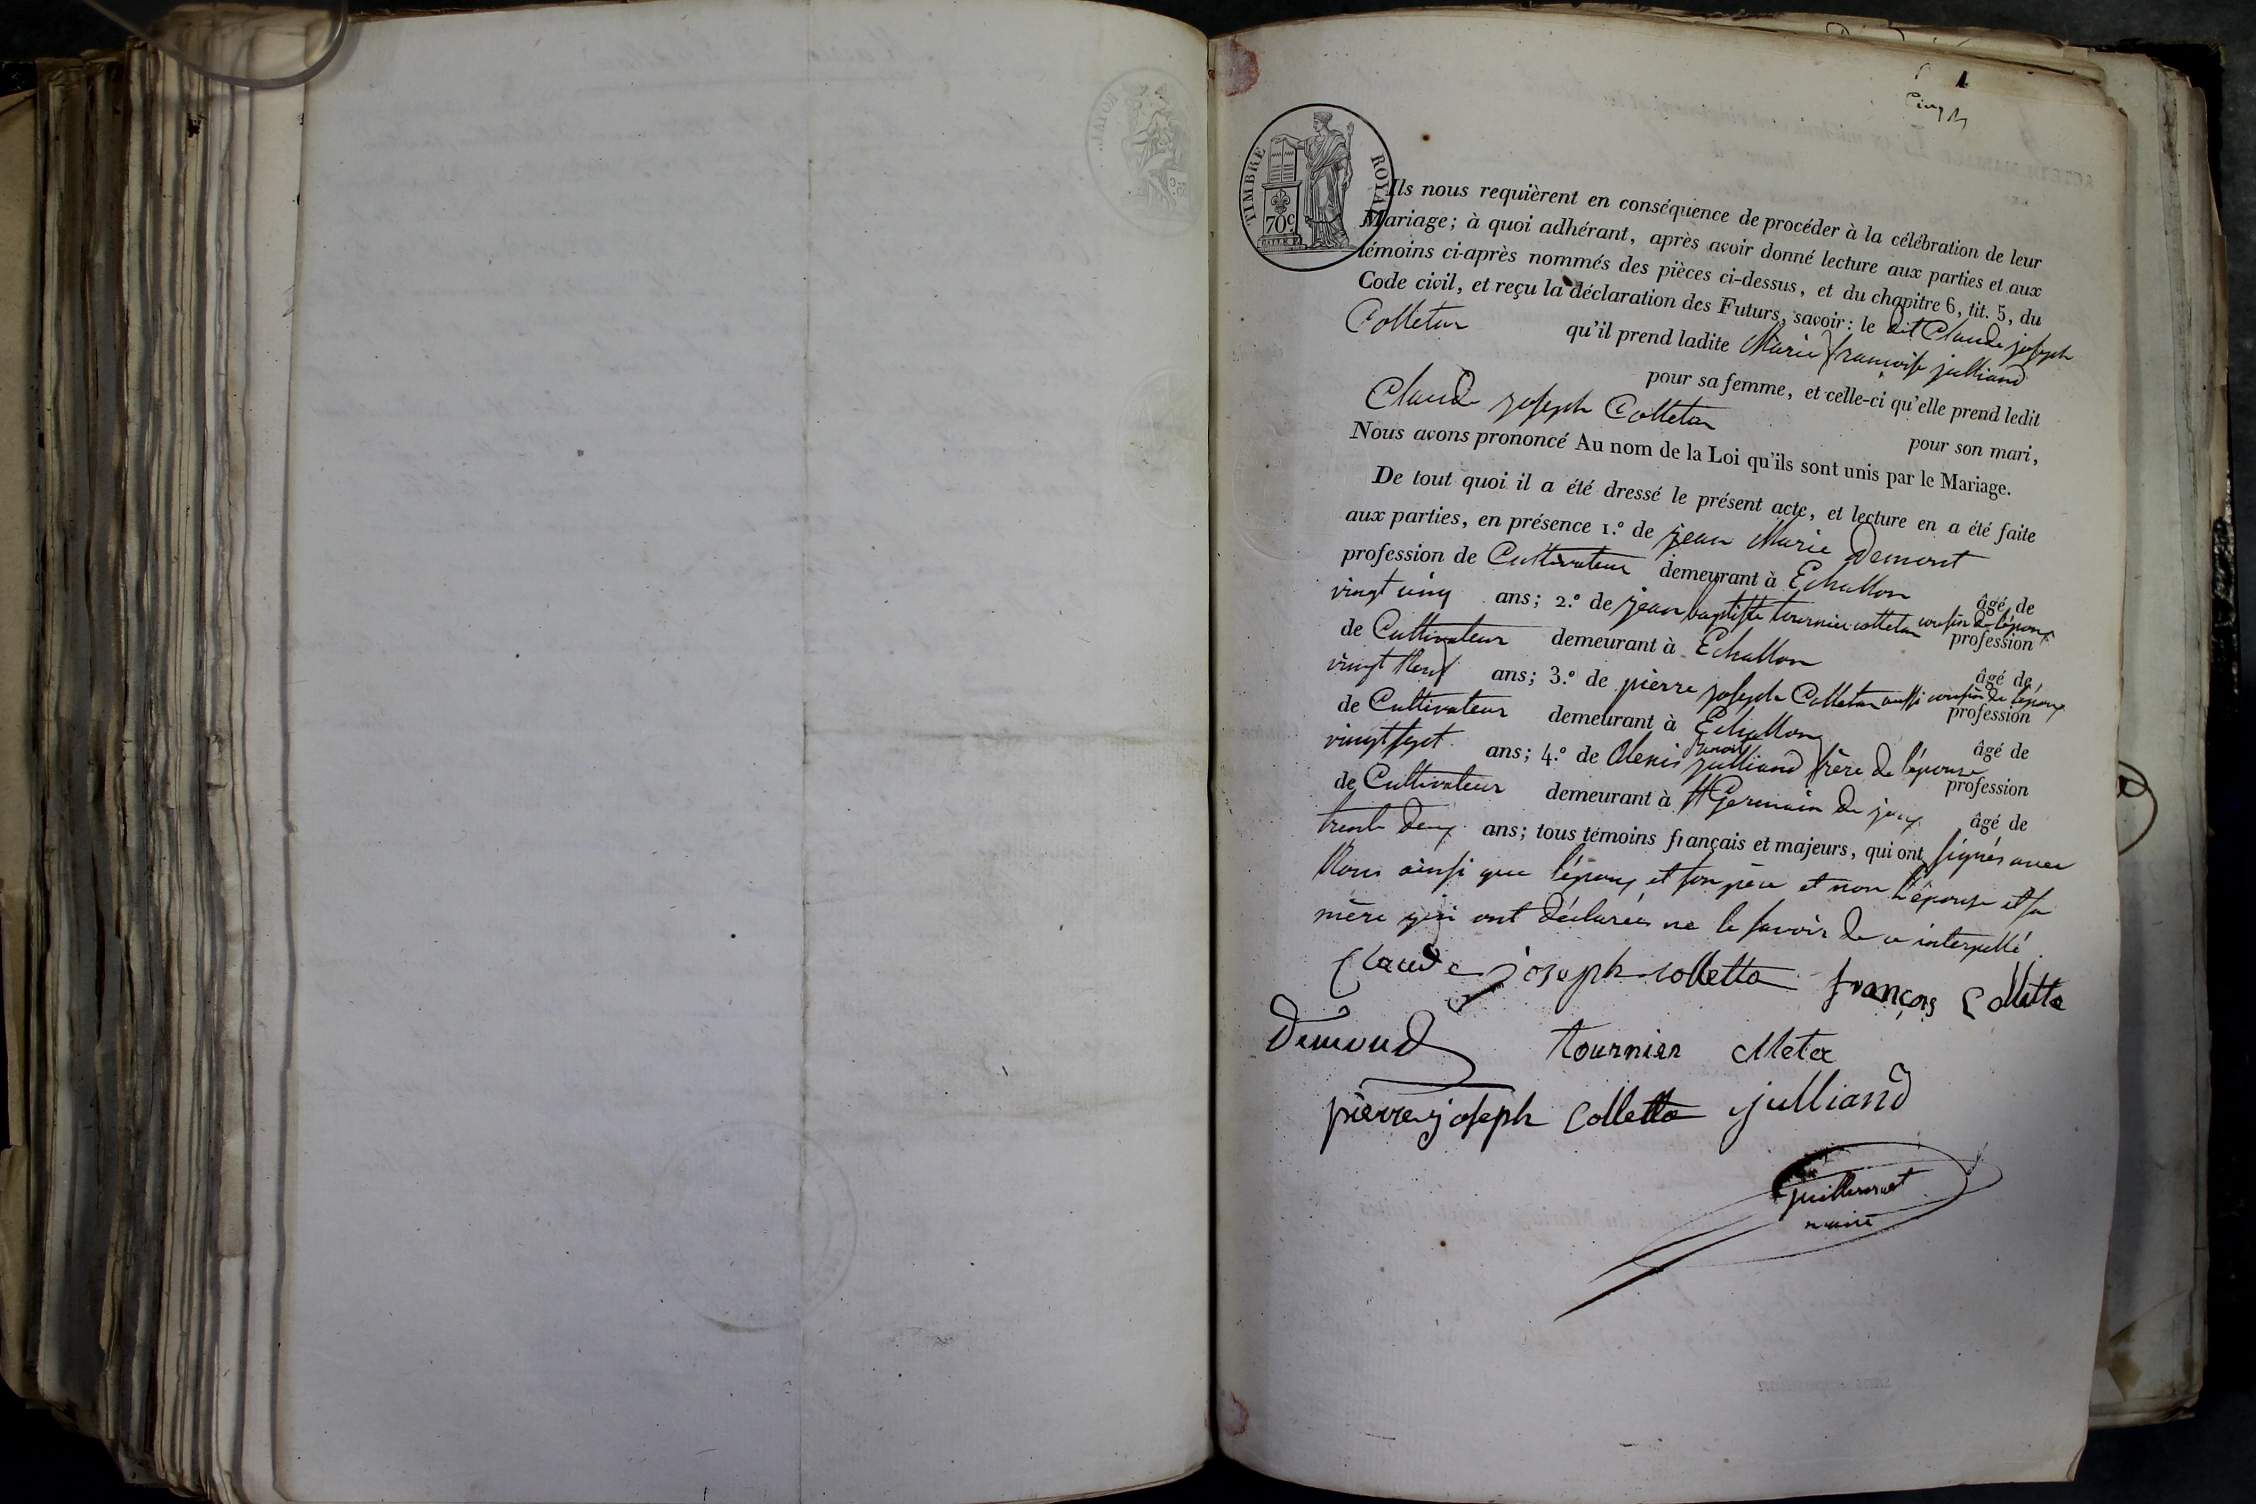 Cinq
TIMBRE ROYAL
70c
Ils nous requièrent en conséquence de procéder à la célébration de leur
Mariage; à quoi adhérant, après avoir donné lecture aux parties et aux
témoins ci-après nommés des pièces ci-dessus, et du chapitre 6, tit. 5, du
Code civil, et reçu la déclaration des Futurs, savoir: le dit Claude joseph
Colletaz qu'il prend ladite Marie françoise julliand
pour sa femme, et celle-ci qu'elle prend ledit
Claude joseph Colletaz pour son mari,
Nous avons prononcé Au nom de la Loi qu'ils sont unis par le Mariage.
De tout quoi il a été dressé le présent acte, et lecture en a été faite
aux parties, en présence 1.º de jean Marie Demont
profession de Cultivateur demeurant à Echallon âgé de
vingt cinq ans; 2.º de jean baptiste tournier colletaz cousin de l'époux profession
de Cultivateur demeurant à Echallon âgé de
vingt Neuf ans; 3.º de pierre joseph Colletaz aussi cousin de l'époux profession
de Cultivateur demeurant à Echallon âgé de
vingt sept ans; 4.º de Alexis benoit julliand frère de l'épouse profession
de Cultivateur demeurant à St Germain de joux âgé de
trente deux ans; tous témoins français et majeurs, qui ont signés avec
Nous ainsi que l'époux et son père et non L'épouse et sa
mère qui ont déclarées ne le savoir de ce interpellé.
Claude joseph colletta françois colletta
Demond tournier
pierre joseph Colletta julliand
maire